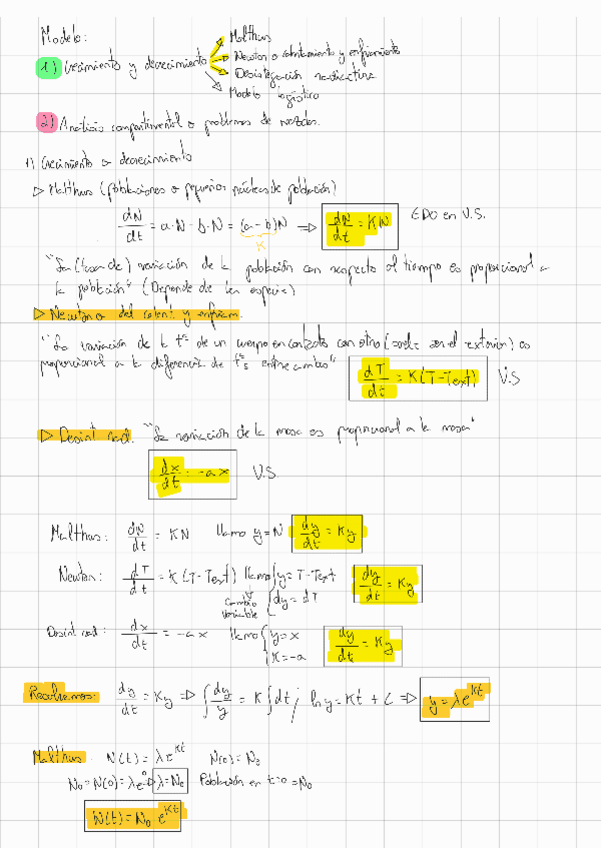 Modelo:
Malthus
1) Crecimiento y decrecimiento
Newton o calentamiento y enfriamiento
Desintegración radiactiva
Modelo logístico
2) Análisis compartimental o problemas de mezclas.
1) Crecimiento o decrecimiento
▷ Malthus (poblaciones o pequeños núcleos de población)
dN/dt = a·N - b·N = (a-b)N ⇒ dN/dt = KN EDO en V.S.
K
"La (tasa de) variación de la población con respecto al tiempo es proporcional a
la población" (Depende de la especie)
▷ Newton o del calent. y enfriam.
"La variación de la tª de un cuerpo en contacto con otro ( ser el exterior) es
proporcional a la diferencia de tªs entre ambos" dT/dt = K(T-Text) V.S
▷ Desint rad. "La variación de la masa es proporcional a la masa"
dx/dt = -ax V.S.
Malthus: dN/dt = KN llamo y=N dy/dt = Ky
Newton: dT/dt = K(T-Text) llamo { y=T-Text dy/dt = Ky
Cambio variable { dy=dT
Desint rad: dx/dt = -ax llamo { y=x dy/dt = Ky
{ K=-a
Resolvemos: dy/dt = Ky ⇒ ∫ dy/y = K ∫ dt; ln y = Kt + C ⇒ y = λe^Kt
Malthus. N(t) = λe^Kt N(0) = N₀
N₀ = N(0) = λe⁰ ⇒ λ = N₀ Población en t=0 = N₀
N(t) = N₀ e^Kt